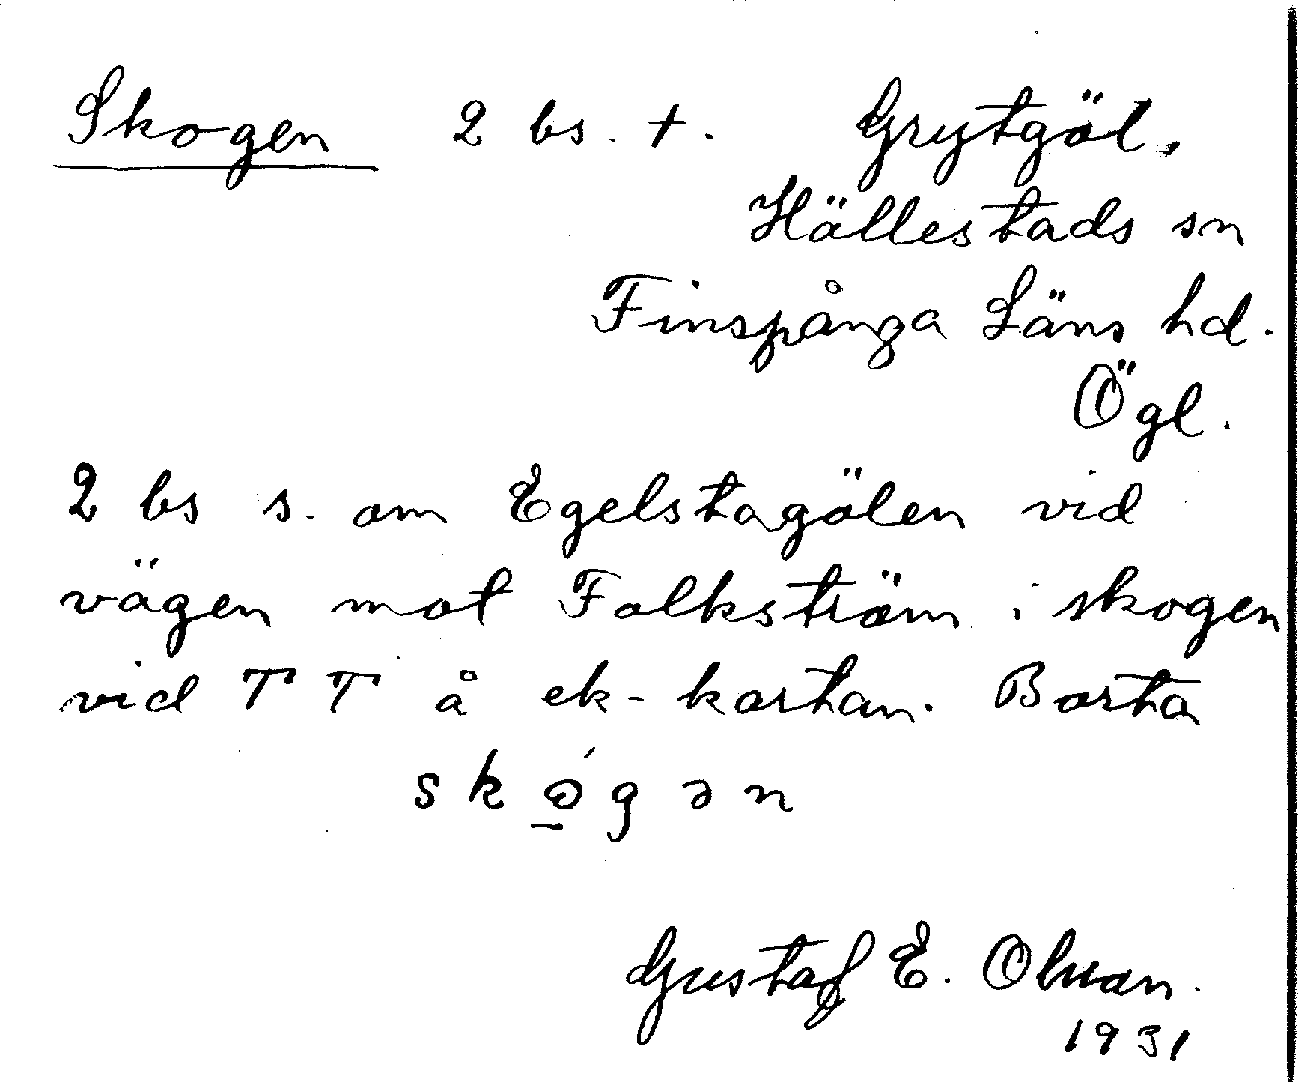 Skogen 2 bs. †. Grytgöl,
Hällestads sn
Finspånga Läns hd.
Ögl.
2 bs s. om Egelstagölen vid
vägen mot Folkström i skogen
vid T T å ek-kartan. Borta
skǫ́gən
Gustaf E. Olsson.
1931